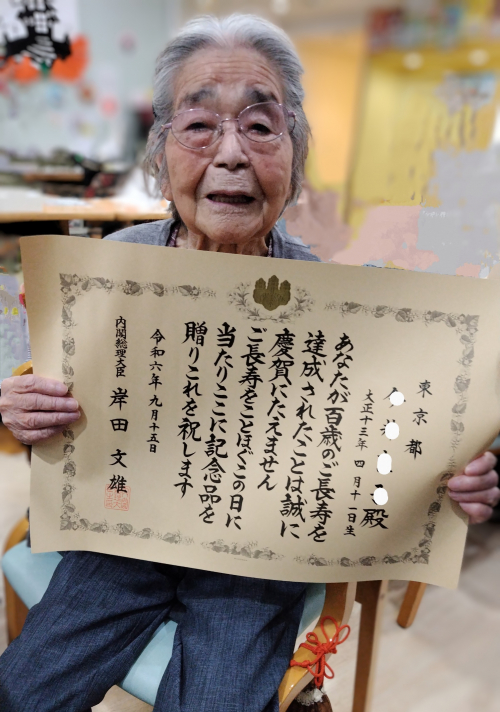 東京都
殿
大正十三年 四月十一日生
あなたが百歳のご長寿を
達成されたことは誠に
慶賀にたえません
ご長寿をことほぐこの日に
当たりここに記念品を
贈りこれを祝します
令和六年 九月十五日
内閣総理大臣 岸田文雄